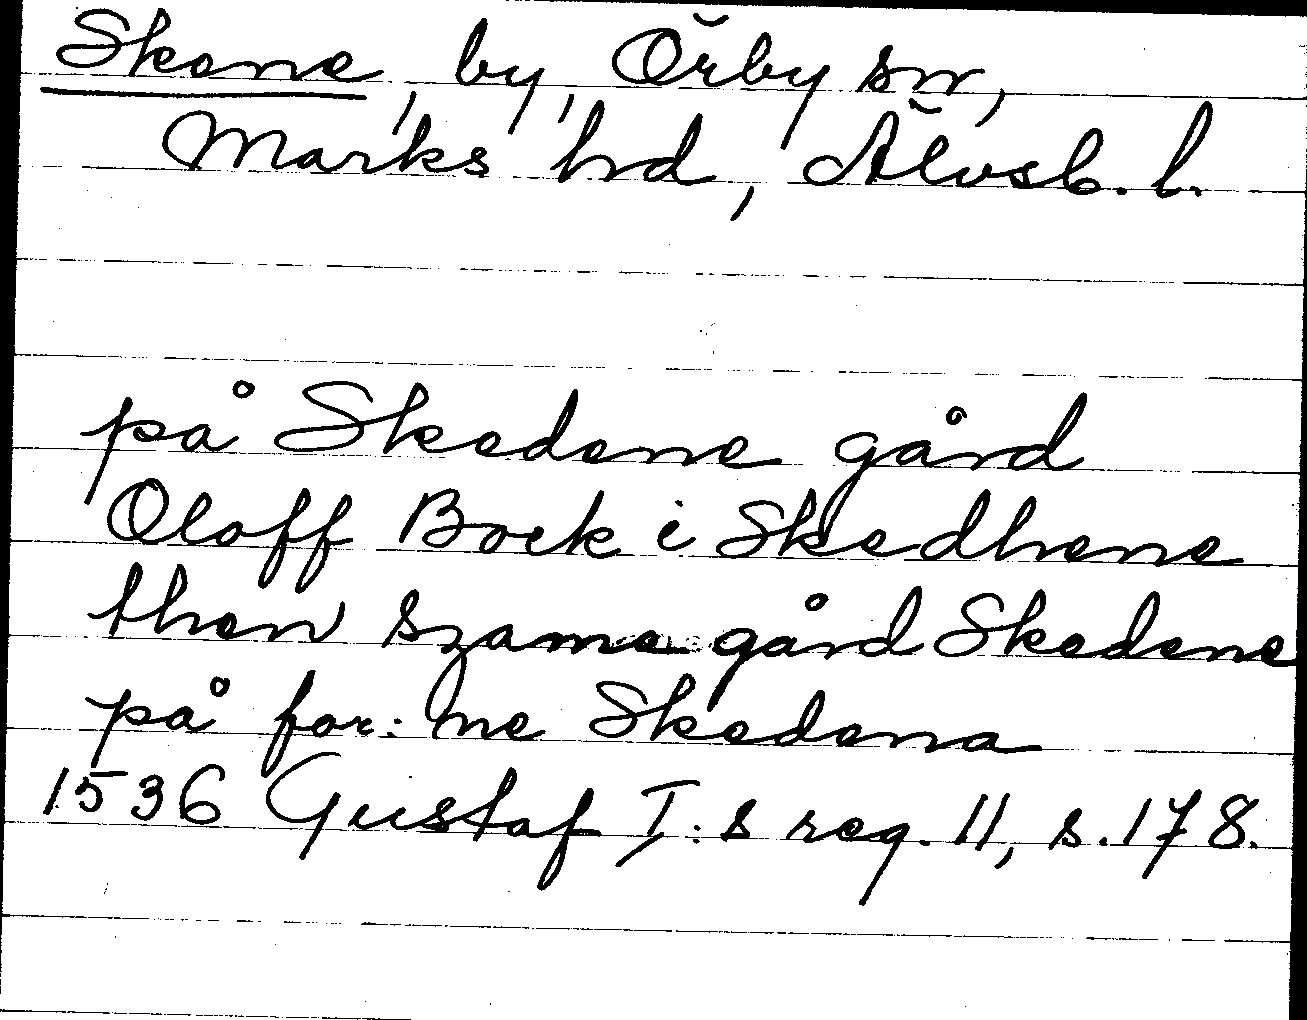 Skene, by, Örby sn,
Marks hd, Älvsb. l.
på Skedene gård
Oloff Bock i Skedhene
then szame gård Skedene
på for: ne Skedena
1536 Gustaf I: s reg. 11, s. 178.